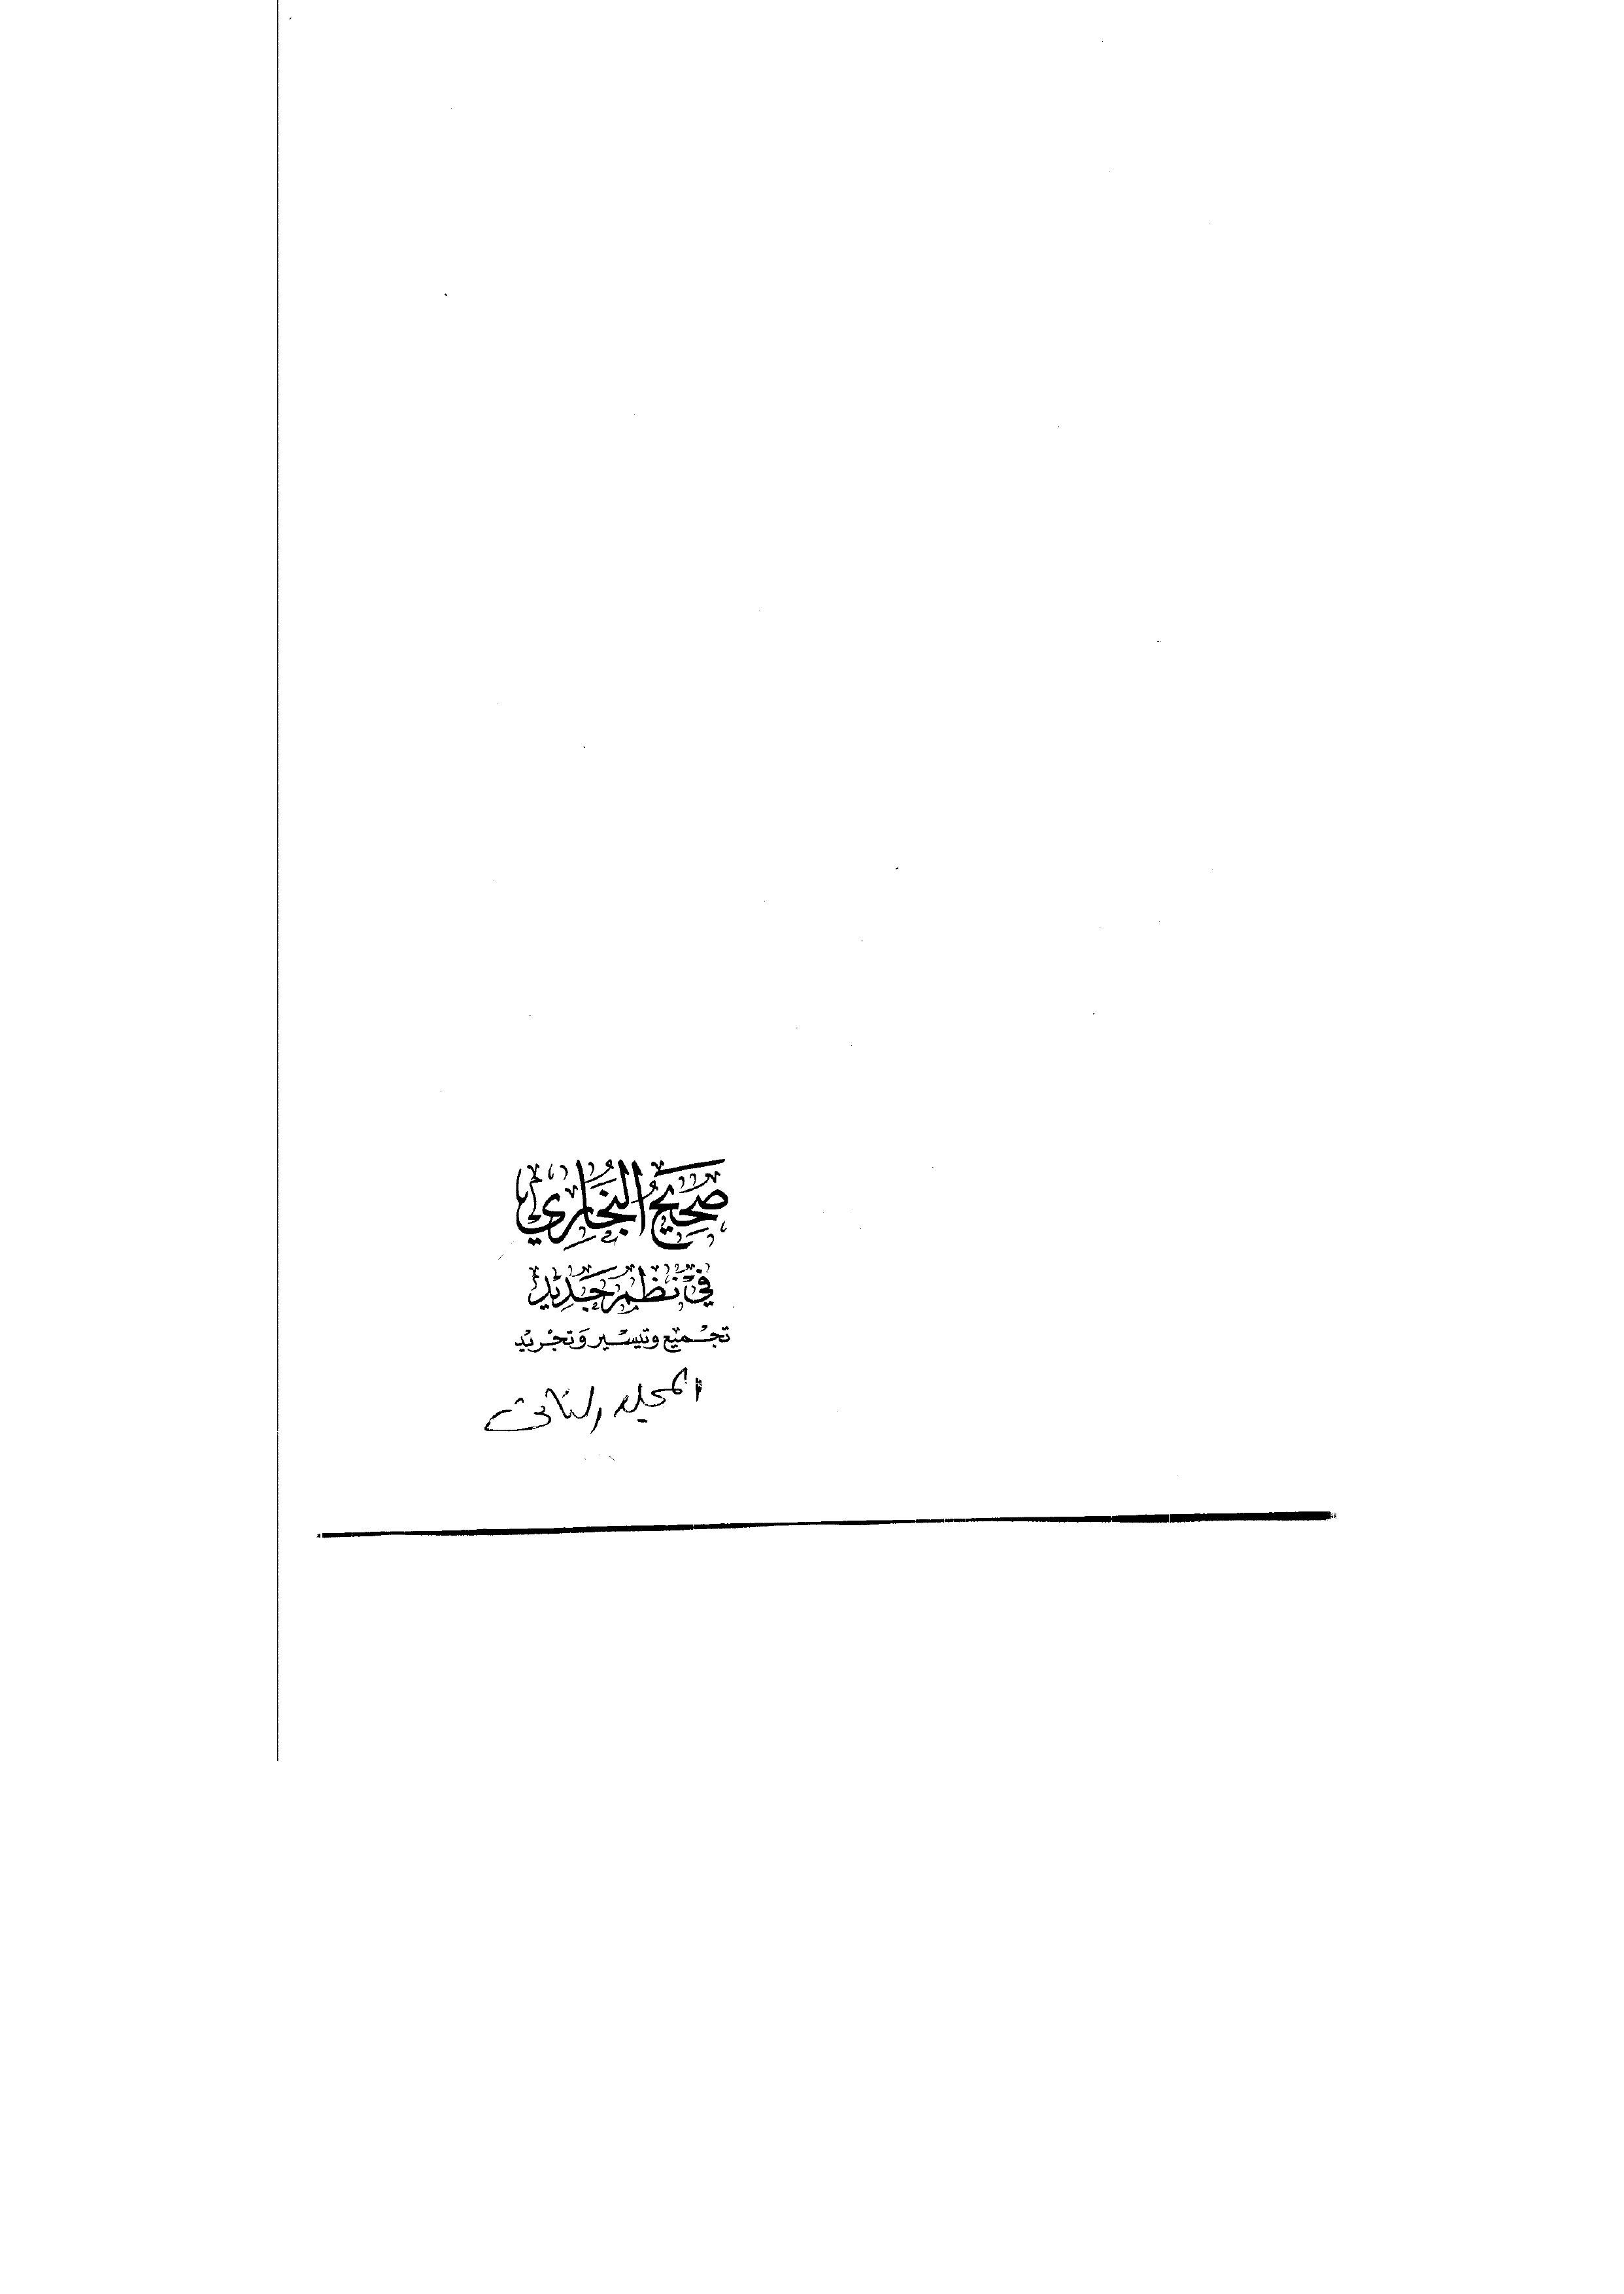 صَحِيحُ البُخَارِيِّ
فِي نَظْمٍ جَدِيدٍ
تجْميع وتيسْير وَتجْريْد
المجلد الثاني